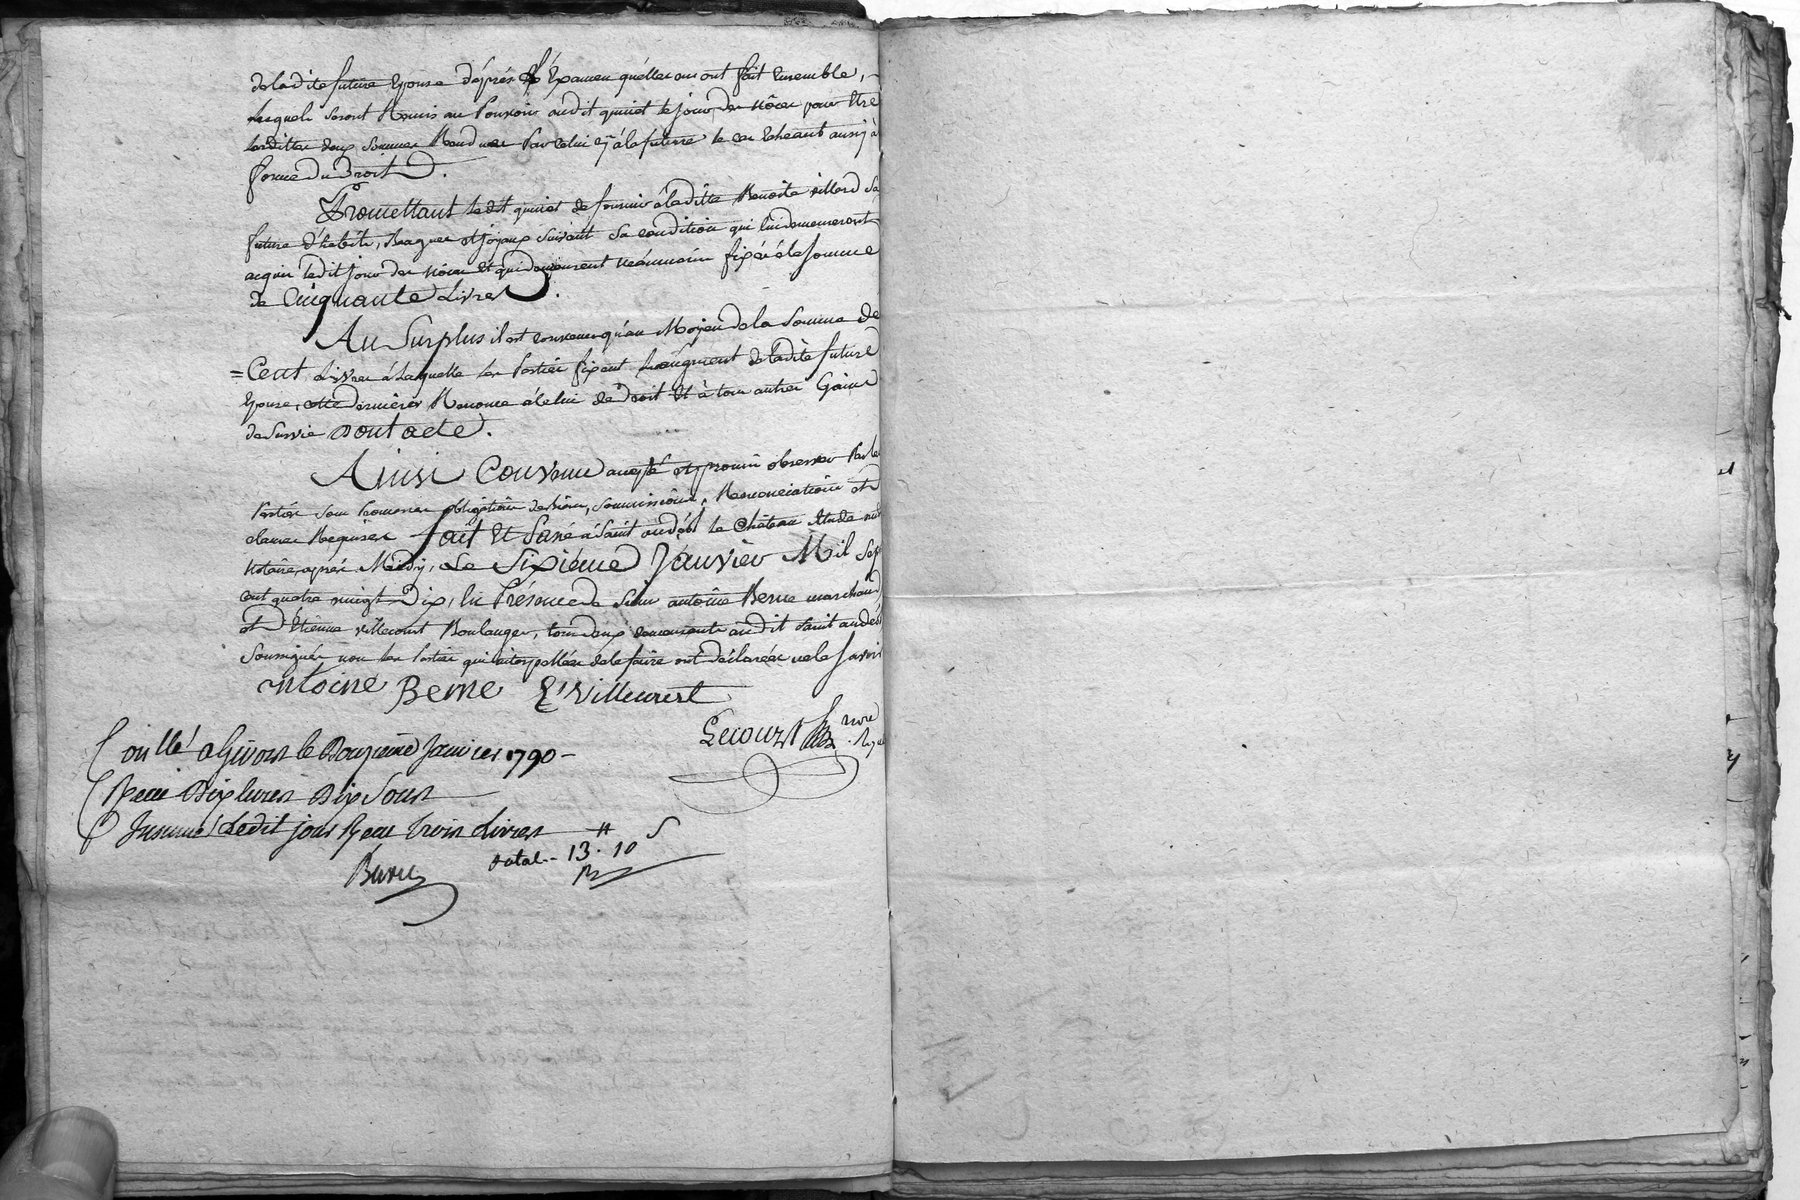 de ladite future Epouse d'aprés l'Examen qu'elles en ont fait Ensemble,
lesquels seront Remis au Pouvoir audit quiniet le jour des nôces pour Etre
lesdittes deux sommes Rendues Par celui cy à la future le cas Echeant aussy à
forme Du Droit.
Promettant ledit quiniet de fournir à ladite Benoite villard sa
future d'habits, Bagues et joyaux suivant sa condition qui lui demeureront
acquis ledit jour des nôces Et qui demeurent neanmoins fixés à la somme
de Cinquante Livres.
Au Surplus il est convenu qu'au Moyen de la Somme de
= Cent Livres à Laquelle les Parties fixent L'augment de ladite future
Epouse, cette derniére Renonce à celui de Droit Et à tous autres Gains
de Survie Dont acte.
Ainsi Convenu accepté et promis observer Par les
Parties sous Leurs obligation de biens, soumissions, Renonciations et
clauses Requises fait Et Passé à Saint andéol le Château Etude
Notaire, aprés Midy, Le Sixiéme Janvier Mil Sept
cent quatre vingt Dix, En Présence de sieur antoine Berne marchand
et d'Etienne villecourt Boulanger, tous deux demeurants audit saint andéol
Soussignés non les Parties qui interpellées de le faire ont déclarées ne le savoir
Antoine Berne E. Villecourt
Lecourt nore
Royal
Conllé a Givors le Douzieme Janvier 1790 -
Recu Dix livres Dix Sous
Insinué Ledit jour Recu trois livres
total - 13 ₶ 10 s